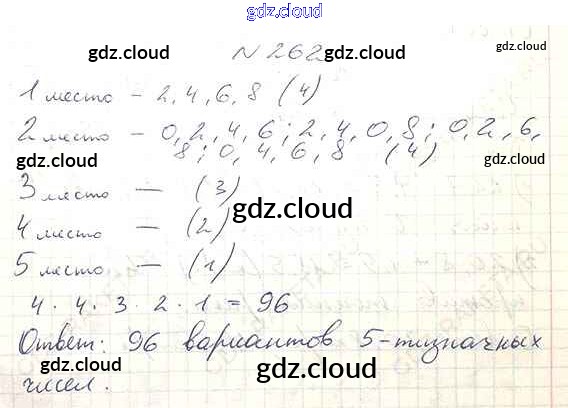 gdz.cloud
gdz.cloud gdz.cloud
N 262
1 место - 2, 4, 6, 8 (4)
gdz.cloud gdz.cloud
2 место - 0, 2, 4, 6; 2, 4, 0, 8; 0, 2, 6,
8; 0, 4, 6, 8 (4)
gdz.cloud gdz.cloud
3 место — (3)
gdz.cloud
4 место — (2)
5 место — (1)
gdz.cloud gdz.cloud
4 · 4 · 3 · 2 · 1 = 96
Ответ: 96 вариантов 5-тизначных
gdz.cloud gdz.cloud
чисел.